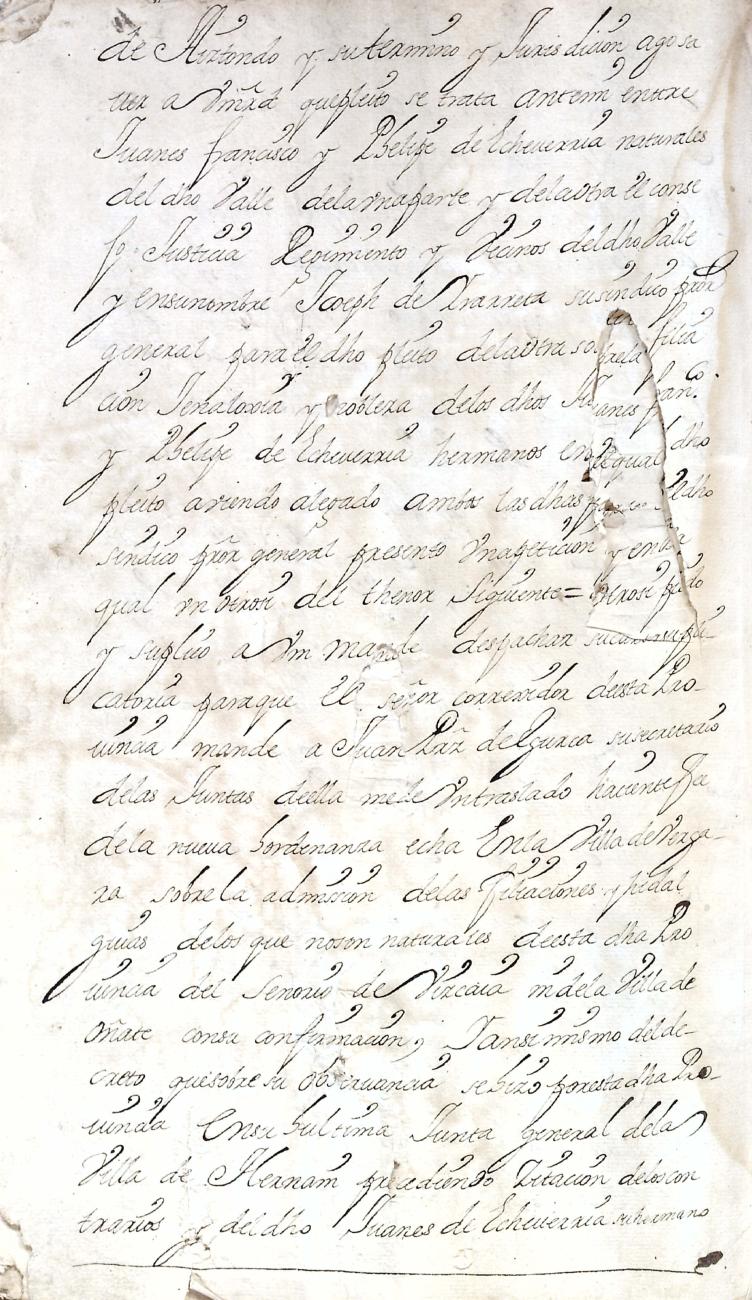 de Aiztondo y su termino y Jurisdicion ago sa
uer a Vmrd que pleito se trata ante mi entre
Juanes francisco y Phelipe de Echeuerria naturales
del dho Valle de la vna parte y de la otra el conse
jo Justicia Regimiento y Vecinos del dho Valle
y en su nombre Joseph de su sindico pror
general para el dho pleito de la otra sobre la filia
cion Jenaloxia y nobleza de los dhos Juanes franco.
y Phelipe de Echeuerria hermanos en el qual dho
pleito auiendo alegado ambas las dhas partes El dho
sindico pror general presento vna peticion y en la
qual vn otrosi del thenor Siguiente = Otrosi pido
y suplico a Vm mande despachar su carta supli
catoria para que El señor correxidor desta Pro-
uincia mande a Juan de su secretario
de las Juntas de ella me de Vn traslado hacientefee
de la nueua hordenanza echa En la Villa de Verga-
ra sobre la admicion de las filiaciones y pedal
guias de los que no son naturales de esta dha Pro
uincia del Senorio de Vizcaia ni de la Villa de
Oñate con su confirmacion, y ansi mismo del de-
creto que sobre su obseruancia se hizo por esta dha Pro-
uincia En su hultima Junta general de la
Villa de Hernani precediendo Zitacion de los con
trarios y del dho Juanes de Echeuerria su hermano